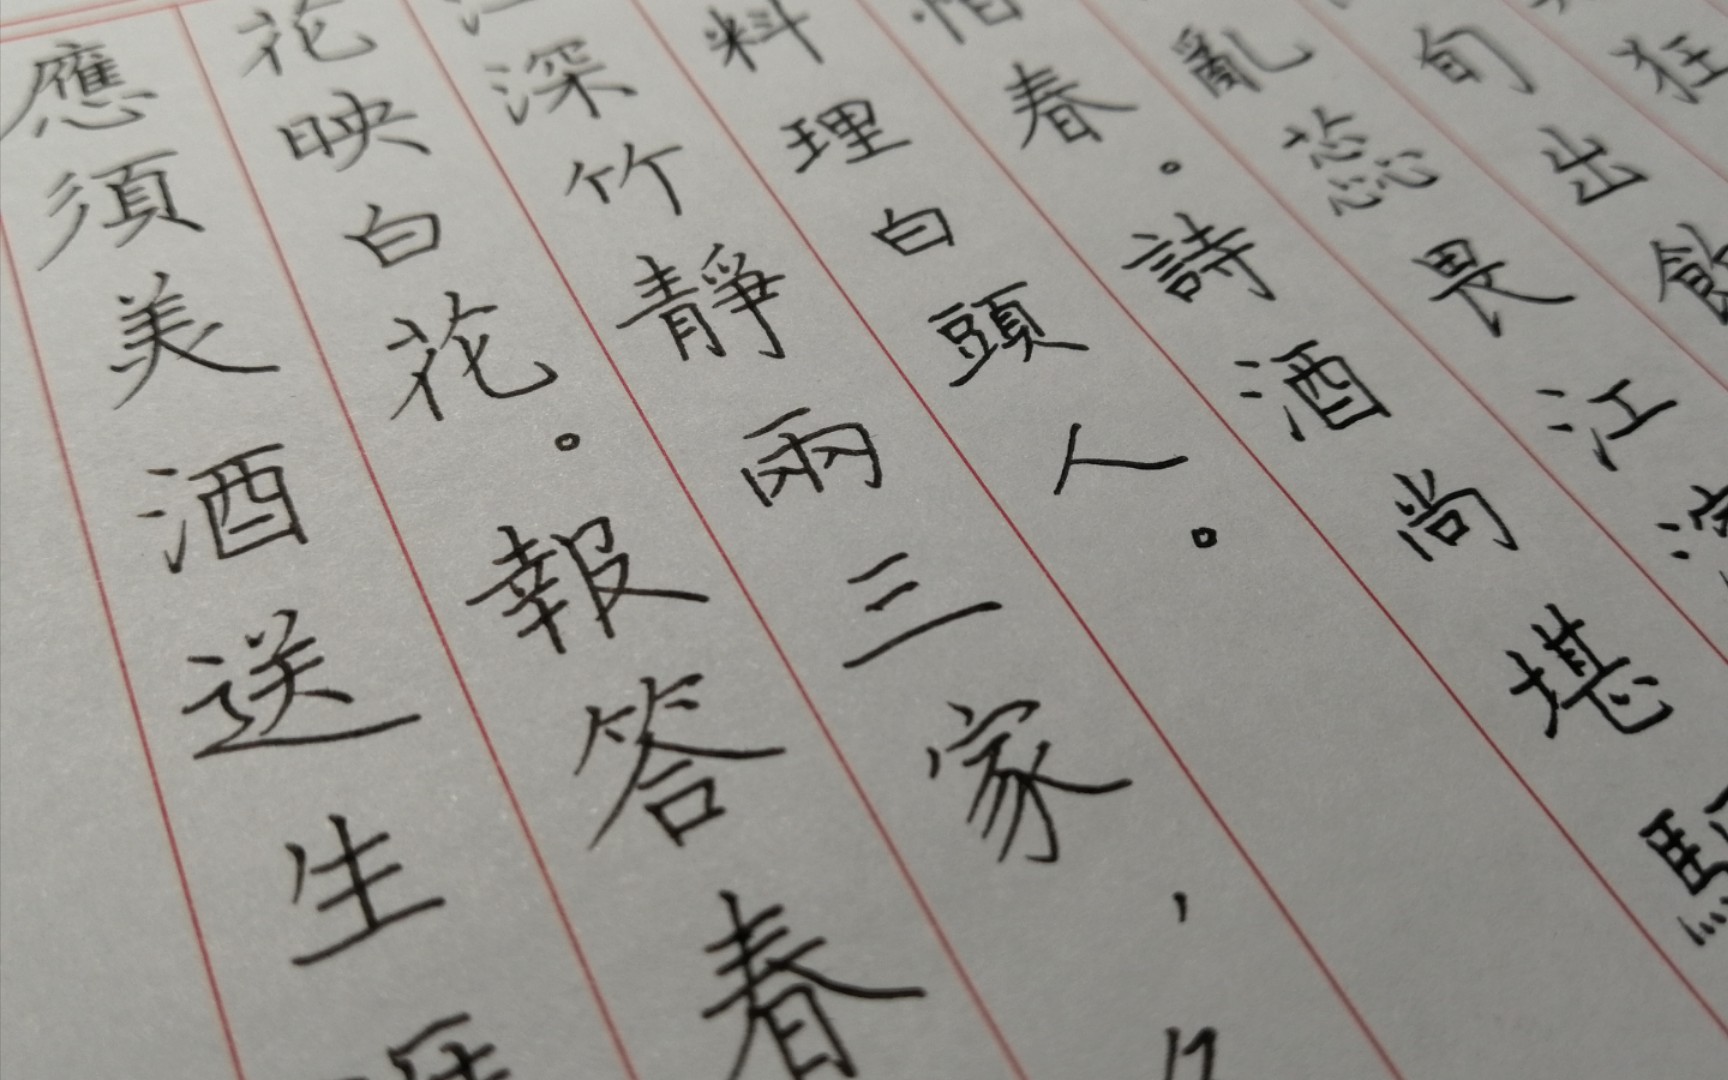 狂
旬出飲
亂蕊畏江
怕春。詩酒尚堪
料理白頭人。
深竹靜兩三家,
花映白花。報答春
應須美酒送生